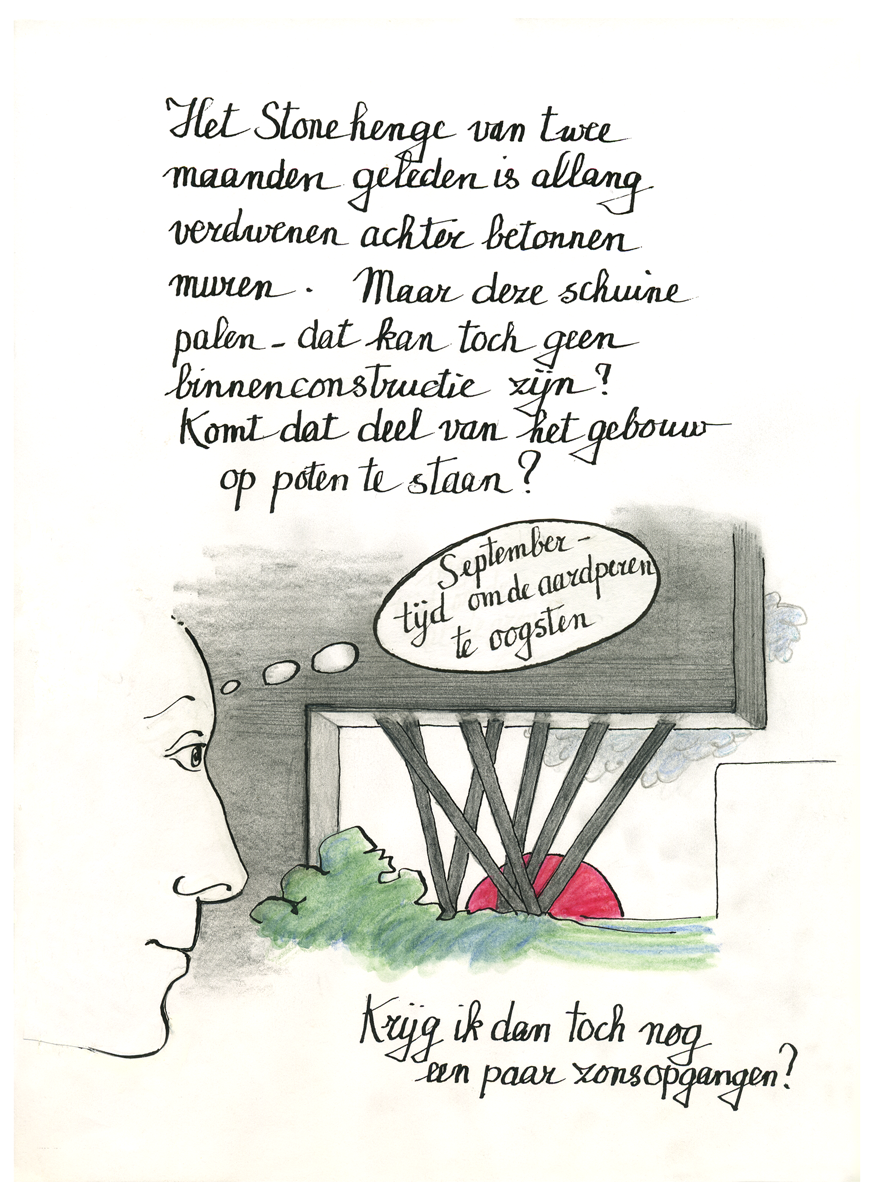 Het Stonehenge van twee
maanden geleden is allang
verdwenen achter betonnen
muren. Maar deze schuine
palen - dat kan toch geen
binnenconstructie zijn?
Komt dat deel van het gebouw
op poten te staan?
September-
tijd om de aardperen
te oogsten
Krijg ik dan toch nog
een paar zonsopgangen?